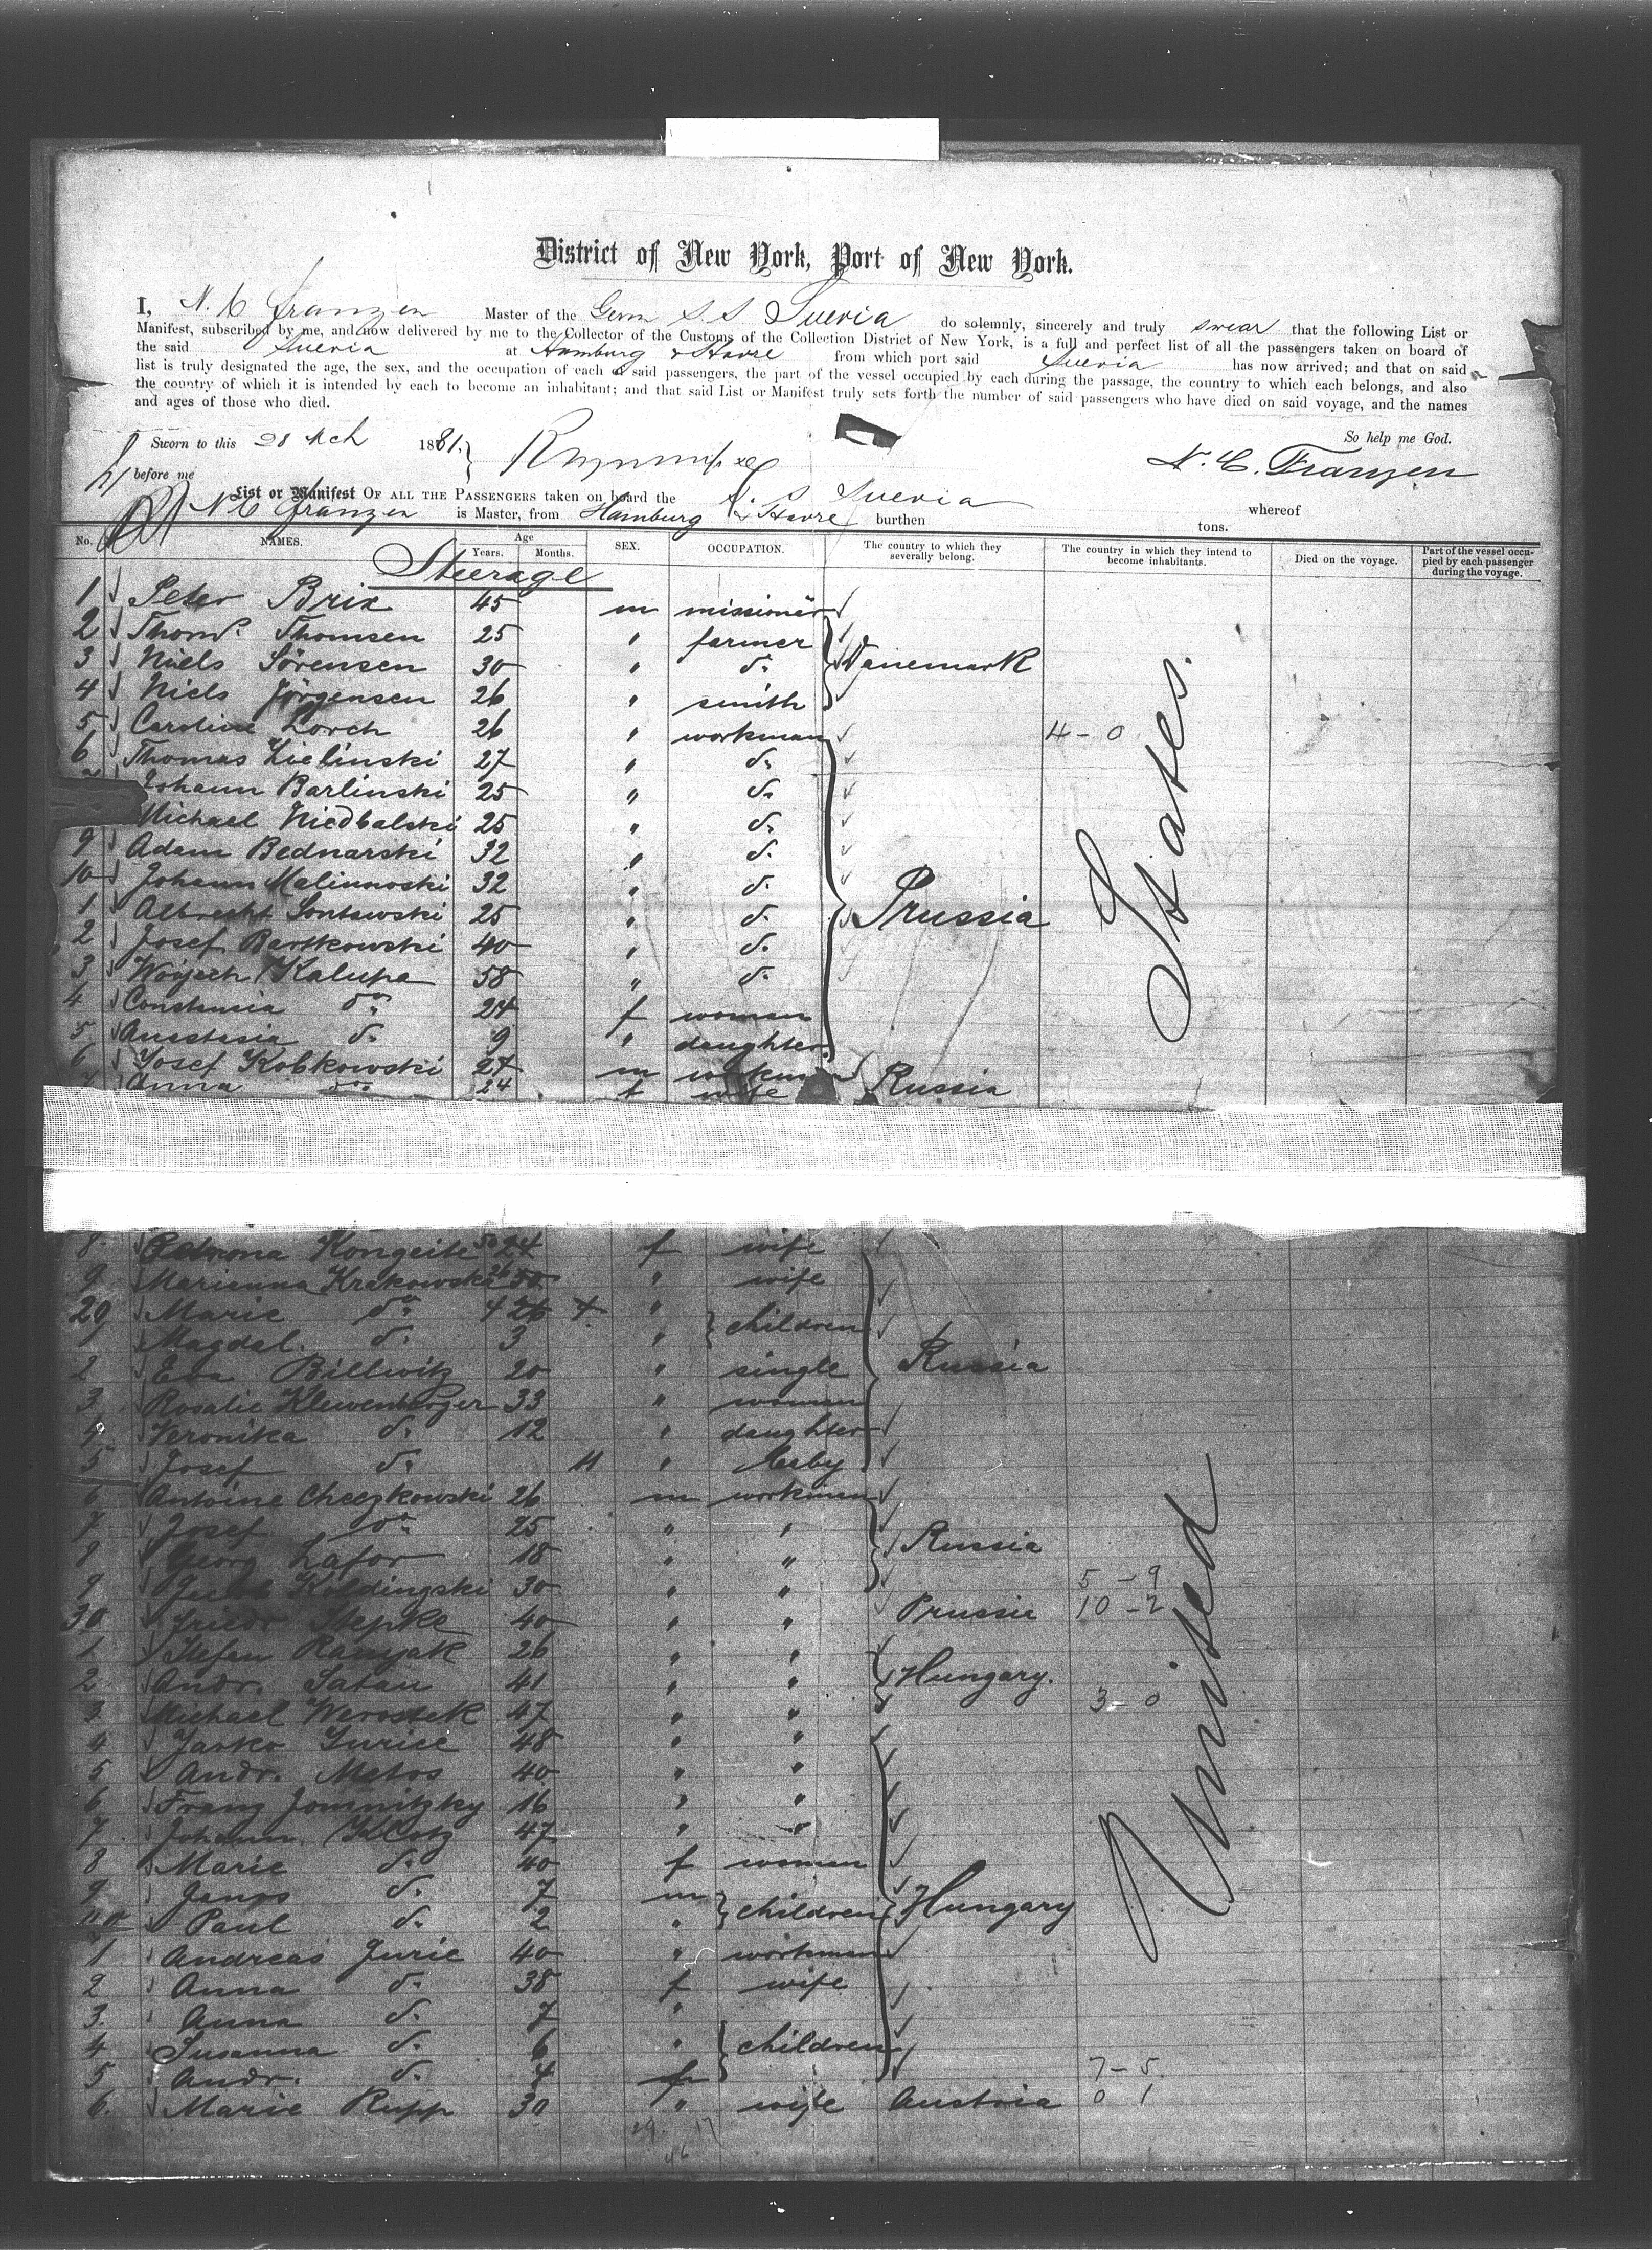 District of New York, Port of New York.
I, N. C Franzen Master of the Germ S. S Suevia do solemnly, sincerely and truly swear that the following List or
Manifest, subscribed by me, and now delivered by me to the Collector of the Customs of the Collection District of New York, is a full and perfect list of all the passengers taken on board of
the said Suevia at Hamburg & Havre from which port said Suevia has now arrived; and that on said
list is truly designated the age, the sex, and the occupation of each of said passengers, the part of the vessel occupied by each during the passage, the country to which each belongs, and also
the country of which it is intended by each to become an inhabitant; and that said List or Manifest truly sets forth the number of said passengers who have died on said voyage, and the names
and ages of those who died.
So help me God.
Sworn to this 28 Mch 1881.
before me
N. C. Franzen
List or Manifest OF ALL THE PASSENGERS taken on board the S. S Suevia whereof
N C Franzen is Master, from Hamburg & Havre burthen tons.
No. NAMES. Age Years. Months. SEX. OCCUPATION. The country to which they severally belong. The country in which they intend to become inhabitants. Died on the voyage. Part of the vessel occupied by each passenger during the voyage.
Steerage
1 Peter Brix 45 m missionär
2 Thoms. Thomsen 25 " farmer
3 Niels Sörensen 30 " do. Danemark
4 Niels Jörgensen 26 " smith
5 Caroline Lorch 26 " workman 4-0
6 Thomas Zielinski 27 " do.
Johann Barlinski 25 " do.
Michael Niedbalski 25 " do.
9 Adam Bednarski 32 " do.
10 Johann Malinnoski 32 " do.
1 Albrecht Sontowski 25 " do. Prussia
2 Josef Bartkowski 40 " do.
3 Wojsech Kalupa 58 " do.
4 Constansia do. 24 f woman
5 Anastasia do. 9 " daughter
6 Josef Kobkowski 27 m workman Russia
7 Anna do. 24 f wife
States.
8 Petrona Kongeite 24 f wife
9 Marianna Krakowski 50 " wife
20 Marie do. 4 "
1 Magdal. do. 3 " children
2 Eva Billwitz 20 " single Russia
3 Rosalie Klewenberger 33 " woman
4 Veronika do. 12 " daughter
5 Josef do. 11 " baby
6 Antoine Cheezkowski 26 m workman
7 Josef do. 25 " "
8 Georg Lafor 18 " " Russia
9 Kildingski 30 " " 5-9
30 Friedr Stepke 40 " " Prussia 10-2
1 Stefan Ranyak 26 " "
2 Andr. Satan 41 " " Hungary.
3 Michael Werostek 47 " " 3-0
4 Janko Jurice 48 " "
5 Andr. Metos 40 " "
6 Franz Jomnitzky 16 " "
7 Johann Klotz 47 " "
8 Marie do. 40 f woman
9 Janos do. 7 m
40 Paul do. 2 " children Hungary
1 Andreas Juric 40 " workman
2 Anna do. 38 f wife
3 Anna do. 7 "
4 Susanna do. 6 " children
5 Andr. do. 4 7-5
6 Marie Rupp 30 " wife Austria 0 1
United
29. 17
46